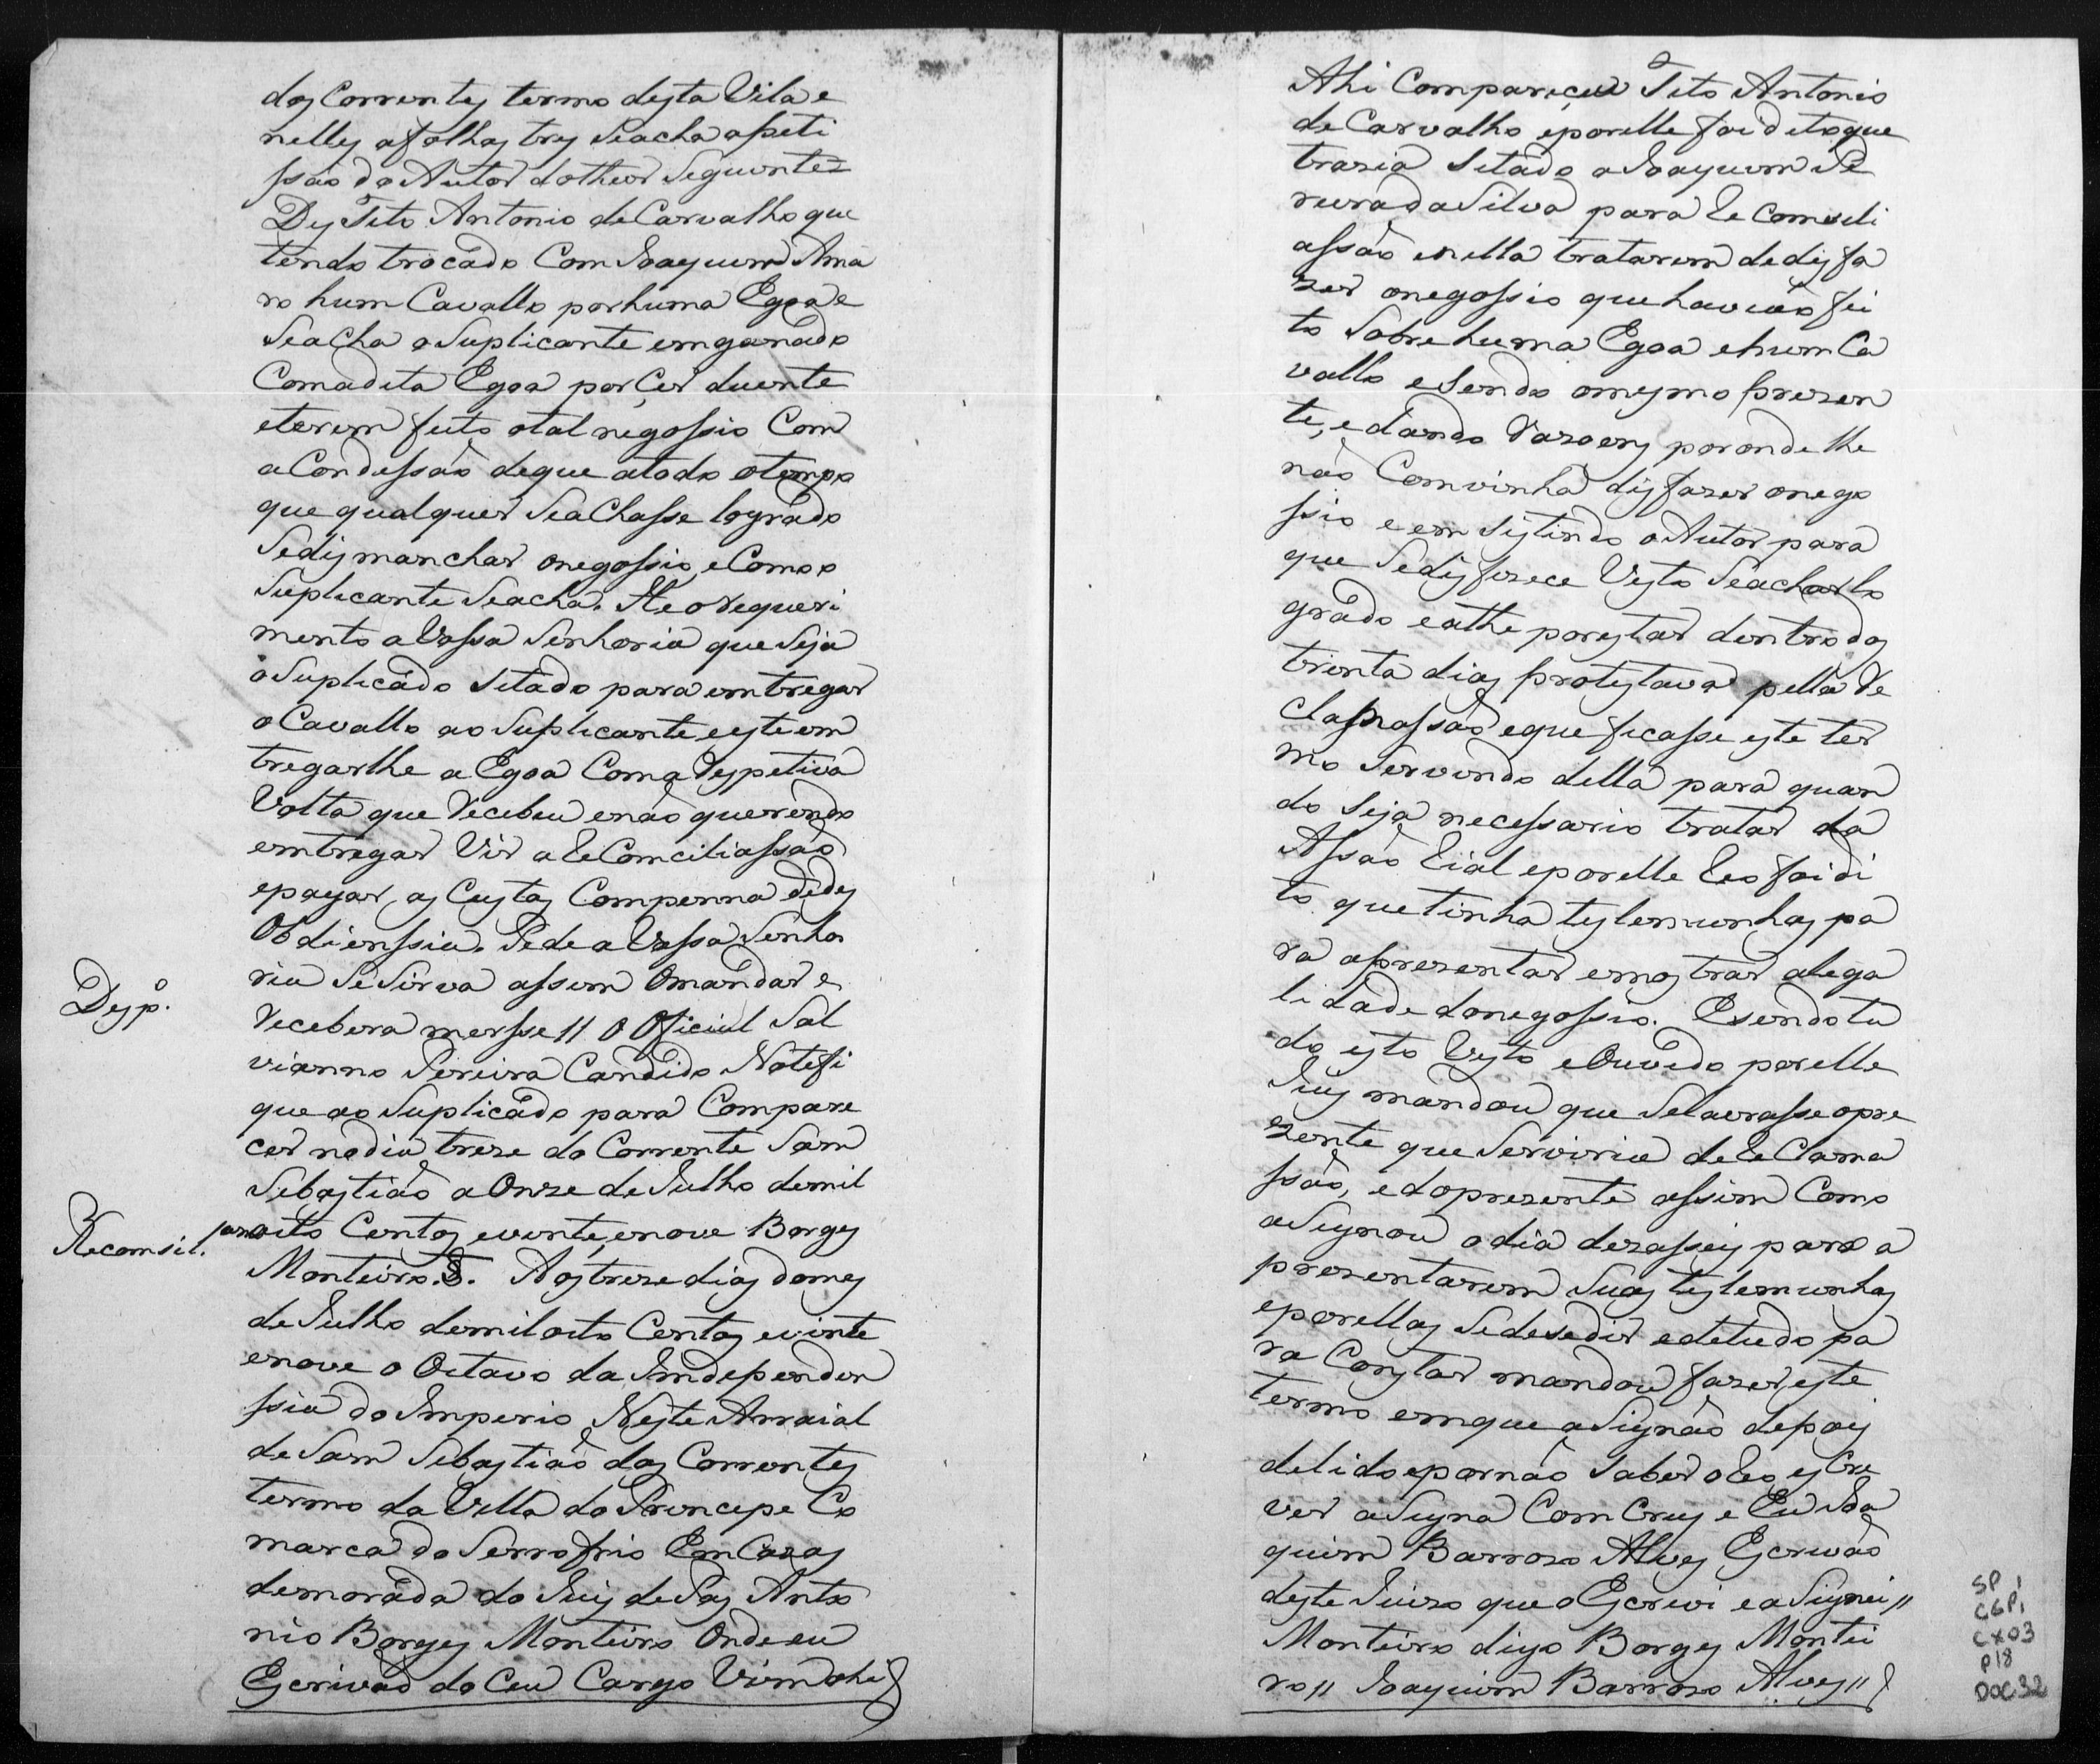 dos Correntes termo desta Vila e
nelles a folhas tres Seacha apeti
ssão do Autor do theor Seguinte=
Dis Tito Antonio de Carvalho que
tendo trocado Com Joaquim Ama
ro hum Cavallo por huma Egoa e
Seacha o Suplicante emganado
Comadita Egoa por Cer duente
eterem feito otal negossio Com
a Condissão deque atodo otempo
que qualquer SeaChasse logrado
Sedismanchar onegossio, eComo o
Suplicante Seacha. He o requeri
mento a Vossa Senhoria que Seja
o Suplicado Sitado para emtregar
o Cavallo ao Suplicante e este em
tregarlhe a Egoa Coma respetiva
Volta que recebeu enão querendo
emtregar Vir a ReConciliassão
epagar, as Custas Compenna dedes
Obdienssia. Pede a Vossa Senho
ria Se Sirva assim Omandar e
Desp.o
recebera mersse // O Oficial Sal
vianno Pereira Candido Notefi
que ao Suplicado para Compare
cer nodia treze do Corrente Sam
Sebastião a Onze de Julho demil
Reconsil.
oito Centos evinte, enove Borges
Monteiro. Aos treze dias domes
de Julho demil oito Centos evinte
enove o Oitavo da Independen
ssia do Imperio Neste Arraial
de Sam Sebastião dos Correntes
termo da Villa do Principe Co
marca do Serro frio Em Cazas
demorada do Juis de Pas Anto
nio Borges Monteiro Onde eu
Escrivão do Ceu Cargo Vim ahi
Ahi Compareceu Tito Antonio
de Carvalho eporelle foi dito que
trazia Sitado a Joaquim Pe
reira da Silva para Re Comsili
assão enella tratarem dedisfa
zer onegossio que havião fei
to Sobre huma Egoa ehum Ca
vallo eSendo omesmo prezen
te, edando razoens poronde lhe
não Comvinha disfazer onego
ssio e em sistindo o Autor para
que Sedisfizece Visto Seachar lo
grado eathe porestar dentro dos
trinta dias protestava pella Re
classão eque ficasse este ter
mo Servindo della para quan
do Seja necessario tratar da
Assão Rial eporelle Reo foi di
to que tinha testemunhas pa
ra aprezentar emostrar alega
lidade donegossio. Esendo tu
do isto Visto eOuvido porelle
Juis mandou que Selavrasse opre
zente que Serviria de Re Clama
ssão, edoprezente assim Como
aSignou odia dezasseis para a
prezentarem Suas testemunhas
eporellas Sedesedir edetudo pa
ra Constar mandou fazer, este
termo emque aSignão depois
delido epornão Saber o Reo, es Cre
ver aSigna Com Crus e Eu Joa
quim Barrozo Alves Escrivão
deste Juizo que o Escrevi eaSignei //
Monteiro digo Borges Montei
ro // Joaquim Barrozo Alves //
SP 1
CGP1
CX03
P18
DOC.32